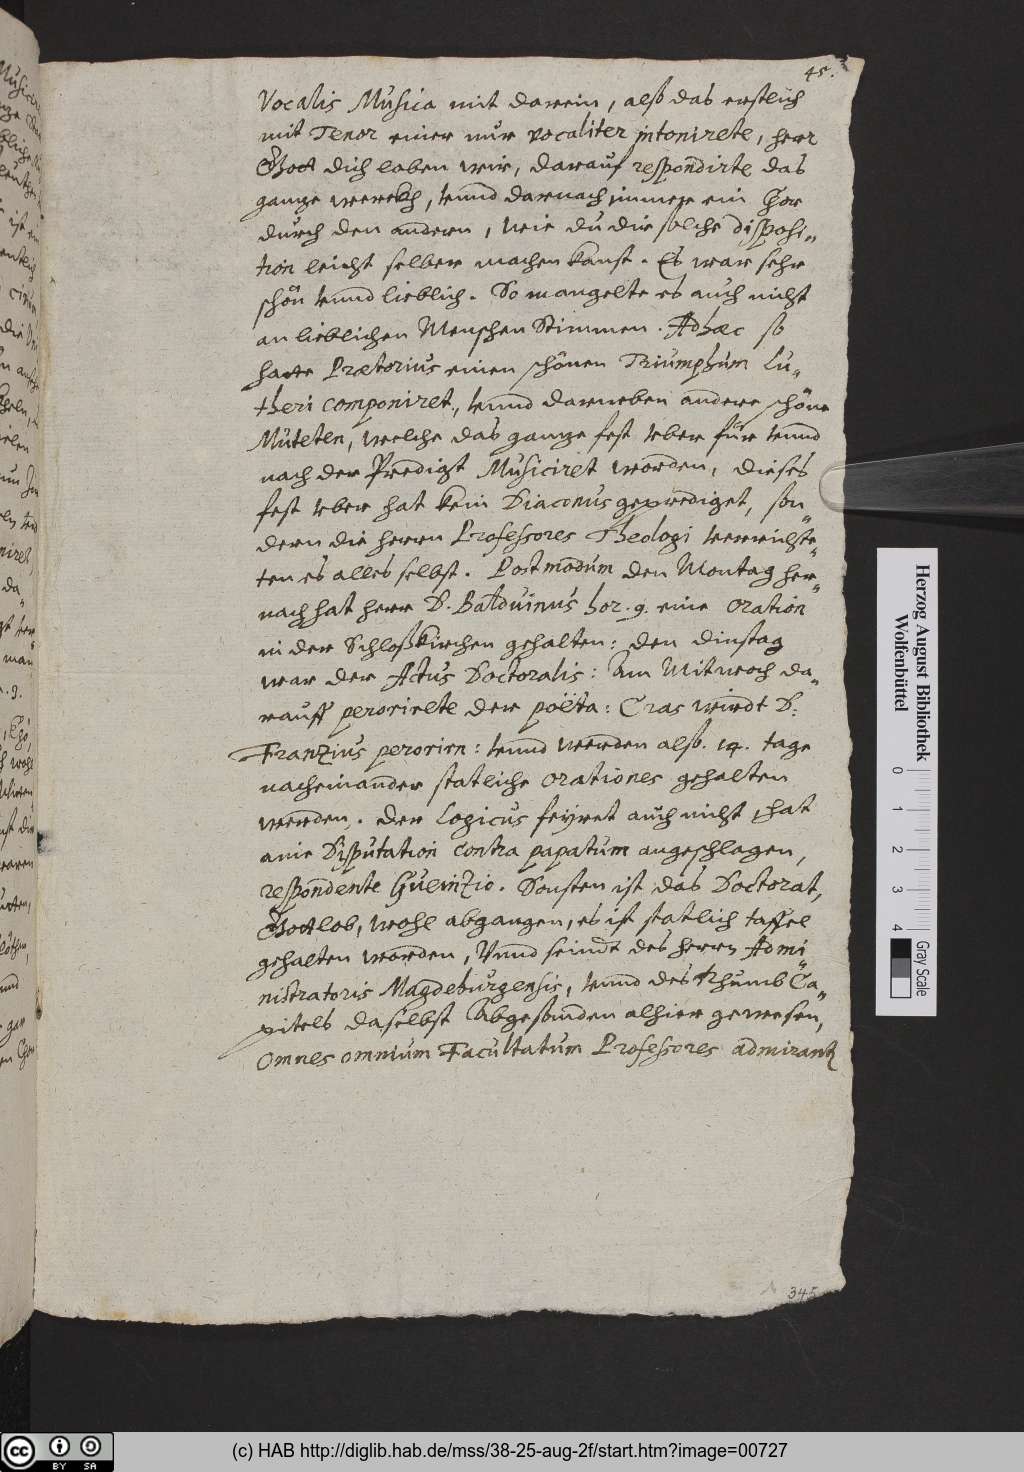 45.
Vocalis Musica mit darein, alß das erstlich
mit Tenor einer nur vocaliter intonirete, herr
Gott dich loben wir, darauf respondirte das
gantze werckh, vnnd darnach immer ein Chor
durch den andern, wie du dir solche disposi„
tion leicht selber machen kanst. Es war sehr
schön vnnd lieblich. So mangelte es auch nicht
an lieblichen Menschen Stimmen. Adhæc so
hatte Prætorius einen schönen Triumphum Lu„
theri componiret, vnnd darneben andere schöne
Muteten, welche das gantze fest vber für vnnd
nach der Predigt Musiciret worden, dieses
fest vber hat kein Diaconus geprediget, son„
dern die herrn Professores Theologi verrichte„
ten es alles selbst. Postmodum den Montag her„
nach hat herr D. Balduinus hor. 9. eine Oration
in der Schloßkirchen gehalten: den dinstag
war der Actus Doctoralis: Am Mitwoch da„
rauff perorirete der poëta: Cras wirdt D.
Franzius peroriren: vnnd werden also. 14. tage
nacheinander statliche Orationes gehalten
werden. der Logicus feyret auch nicht, hat
anie Disputation contra papatum angeschlagen,
respondente Gueinzio. Sonsten ist das Doctorat,
Gottlob, wohl abgangen, es ist statlich taffel
gehalten worden, Vnnd seindt des herrn Admi„
nistratoris Magdeburgensis, vnnd des Thumb Ca„
pitels daselbst Abgesanden alhier gewesen,
Omnes omnium Facultatum Professores admirant
345
Herzog August Bibliothek
Wolfenbüttel
0 1 2 3 4
Gray Scale
(c) HAB http://diglib.hab.de/mss/38-25-aug-2f/start.htm?image=00727
cc BY SA